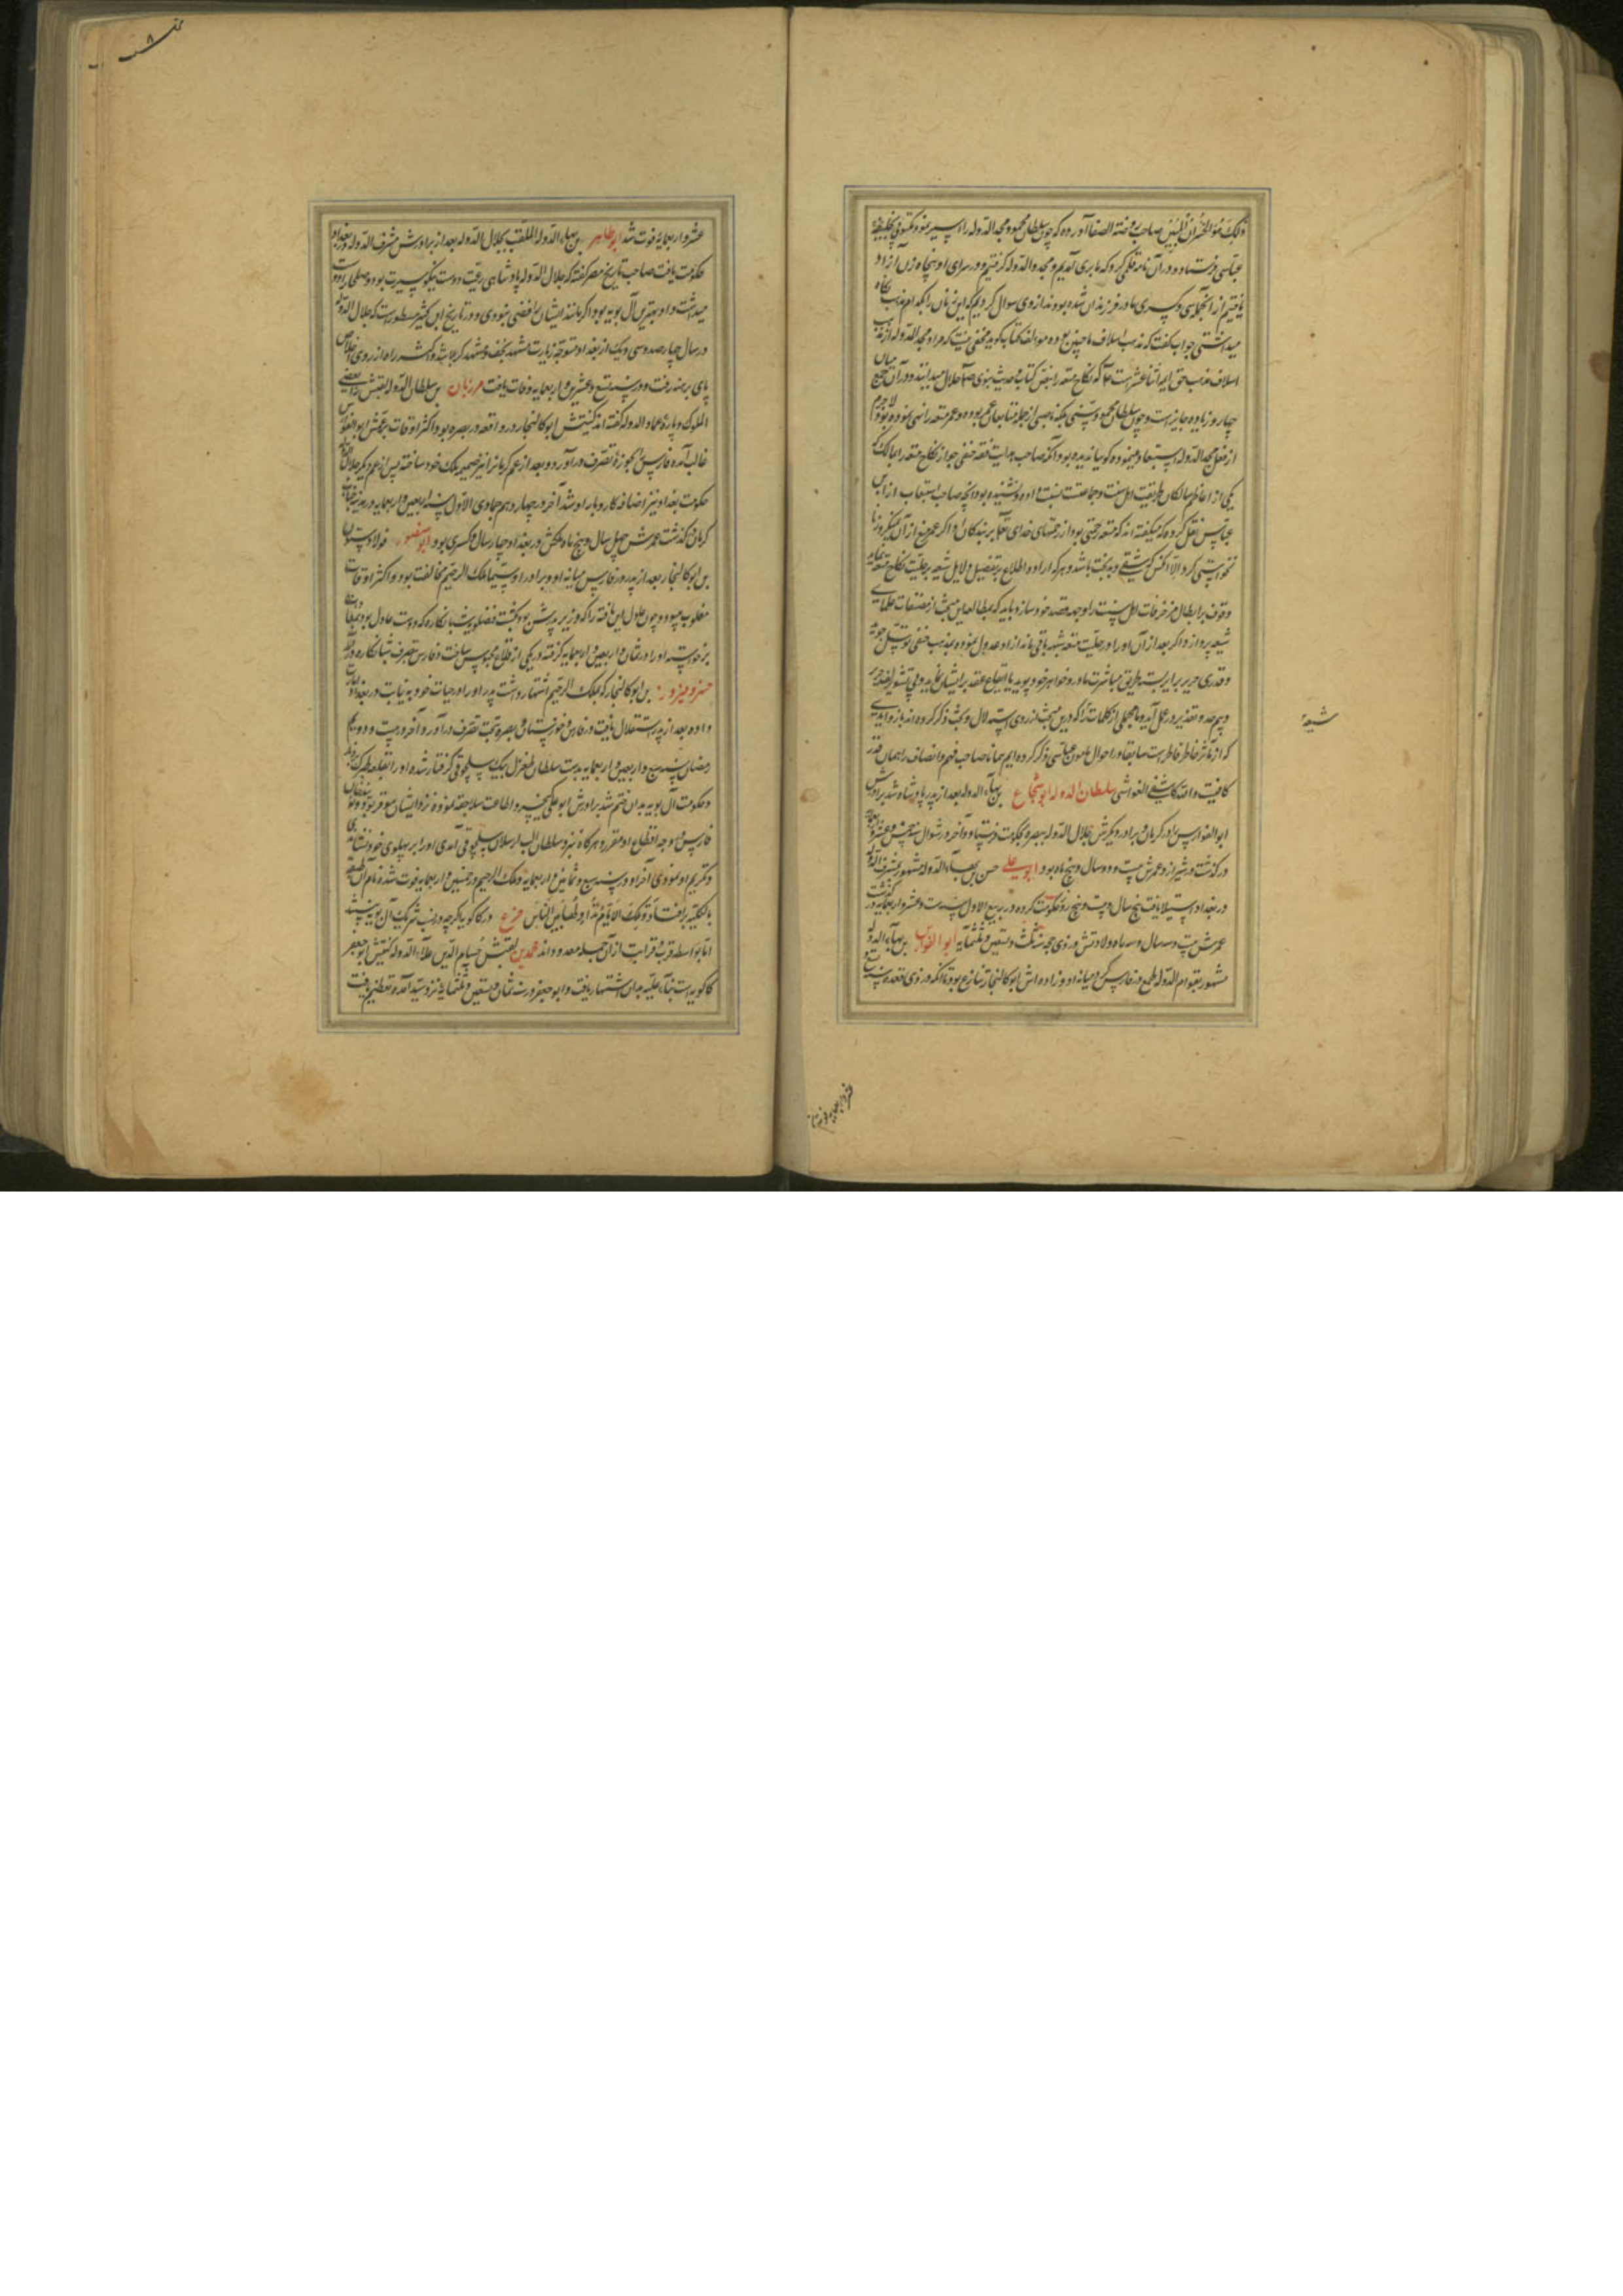 ذلک هو الخسران المبین صاحب روضة الصفا آورده که چون سلطان محمود مجد الدوله را اسیر نمود مکتوبی بخلیفه
عباسی فرستاد و در آن نامه قلمی کرد که ما بری آمدیم و مجد الدوله را گرفتیم و در سرای او پنجاه زن آزاد
یافتیم از آنجمله سی و کسری مادر فرزندان شده بودند از وی سوال کردیم که این زنان را بکدام مذهب نگاه
میداشتی جواب گفت که مذهب اسلاف ما چنین بوده مؤلف کتاب گوید مخفی نیست که مراد مجد الدوله از مذهب
اسلاف مذهب حق ایمه اثنا عشر است که نکاح متعه را بنص کتاب و حدیث نبوی حلال میدانند و در آن جمع میان
چهار و زیاده جایز است و چون سلطان محمود سنی بلکه ناصبی از جمله متابعان عمر بوده و عمر متعه را نهی نموده بود لاجرم
از فعل مجد الدوله استبعاد مینموده گویا ندیده بود آنکه صاحب هدایت فقه حنفی جواز نکاح متعه را بمالک که
یکی از اعاظم سالکان طریقت اهل سنت و جماعتست نسبت داده و نشنیده بود آنچه صاحب استیعاب از ابن
عباس نقل کرده که میگفته اند که متعه رحمتی بود از رحمتهای خدای تعالی بر بندگان او اگر عمر منع از آن نمیکرد زنا
نخواستی کرد الا آنکس که شقی و بدبخت باشد و هر که اراده اطلاع بر تفصیل دلایل شیعه بر حلیت نکاح متعه نماید
و وقوف بر ابطال مزخرفات اهل سنت را وجهه قصد خود سازد باید که بمطالعه این مبحث از مصنفات علمای
شیعه پردازد اگر بعد از آن او را در حلیت متعه شبهه باقی ماند از او عدول نموده بمذهب حنفی توسل جوید
و قدری حریر بر ایر بسته طریق مباشرت مادر و خواهر خود پوید
که از مآثر خاطر فاطر است سابقا در احوال مامون عباسی ذکر کرده ایم همانا صاحب فهم و انصاف را همان قدر
کافیست والله کاشف الغواشی سلطان الدوله ابو شجاع بن بهاء الدوله بعد از پدر پادشاه شد برادرش
ابو الفوارس را در کرمان و برادر دیگرش جلال الدوله ببصره بحکومت فرستاد و آخر در شوال سنه خمس عشر و اربعمایه
درگذشت در شیراز و عمرش بیست و دو سال و پنج ماه بود ابو علی حسن بن بهاء الدوله مشهور بمشرف الدوله
در بغداد استیلا یافت پنج سال و بیست و پنج روز حکومت کرده در ربیع الاول سنه ست و عشر و اربعمایه درگذشت
عمرش بیست و سه سال و سه ماه ولادتش در ذی حجه سنه ثلث و تسعین و ثلثمایه ابو الفوارس بن بهاء الدوله
مشهور بقوام الدوله طمع در فارس کرد میانه او و برادر زاده اش ابو کالنجار تنازع بود تا آنکه در ذی قعده سنه تسع
شیعه
عشر و اربعمایه فوت شد ابو طاهر بن بهاء الدوله الملقب بجلال الدوله بعد از برادرش مشرف الدوله در بغداد
حکومت یافت صاحب تاریخ مصر گفته که جلال الدوله پادشاهی رعیت دوست نیکو سیرت بود و صلحا را دوست
میداشت و او بهترین آل بویه بود اگر مانند ایشان رافضی نبودی و در تاریخ ابن کثیر مسطور است که جلال الدوله
در سال چهار صد و سی و یک از بغداد متوجه زیارت مشهد نجف و مشهد کربلا شد و اکثر راه از روی اخلاص
پای برهنه رفت و در سنه تسع و عشرین و اربعمایه وفات یافت مرزبان بن سلطان الدوله لقبش بعضی
الملوک و پارۀ عماد الدوله گفته اند کنیتش ابو کالنجار در واقعه در بصره بود اکثر اوقات بر عمش ابو الفوارس
غالب آمده فارس را بحوزۀ تصرف درآورد و بعد از عم کرمان را نیز ضمیمه ملک خود ساخته پس از عم دیگر جلال الدوله
حکومت بغداد نیز اضافه کاروبار او شد آخر در چهاردهم جمادی الاول سنه اربعین و اربعمایه در مدینه جناب
کرمان گذشت عمرش چهل سال و پنج ماه ملکش در بغداد چهار سال و کسری بود ابو منصور فولاد ستون
بن ابو کالنجار بعد از پدر در فارس میانه او و برادر او سیما ملک الرحیم مخالفت بود و اکثر اوقات
مغلوب میبود و چون
برخواسته او را در ثمان و اربعین و اربعمایه گرفته در یکی از قلاع محبوس ساخت و فارس بتصرف شبانکاره درآمد
خسرو فیروز بن ابو کالنجار که بملک الرحیم اشتهار داشت پدر او را در حیات خود به نیابت در بغداد
داده بعد از پدر استقلال یافت و فارس و خوزستان و بصره بتحت تصرف درآورد و آخر در بیست و دویم
رمضان سنه سبع و اربعین و اربعمایه بدست سلطان طغرل بیک سلجوقی گرفتار شده او را بقلعه طبرک برد
و حکومت آل بویه بدان ختم شد برادرش ابو علی کیخسرو اطاعت سلاجقه نموده نزد ایشان موقر بود
فارس وجه اقطاع او مقرر و هرگاه نزد سلطان الب ارسلان سلجوقی آمدی او را بر پهلوی خود نشاندی
و تکریم او نمودی آخر او در سنه سبع و ثمانین و اربعمایه و ملک الرحیم در خمسین و اربعمایه فوت شد و نام آن طبقه
بالکلیه برافتاد و تلک الایام نداولها بین الناس فرع در کاکویه اگر چه در نسب شریک آل بویه نیستند
اما بواسطه قرب و قرابت از آن جمله معدود اند محمد بن لقبش حسام الدین علاء الدوله کنیتش ابو جعفر
کاکویه است بنا علیه بدان اشتهار یافت و ابو جعفر در سنه ثمان و تسعین و ثلثمایه نزد سیده آمده تعظیم یافت